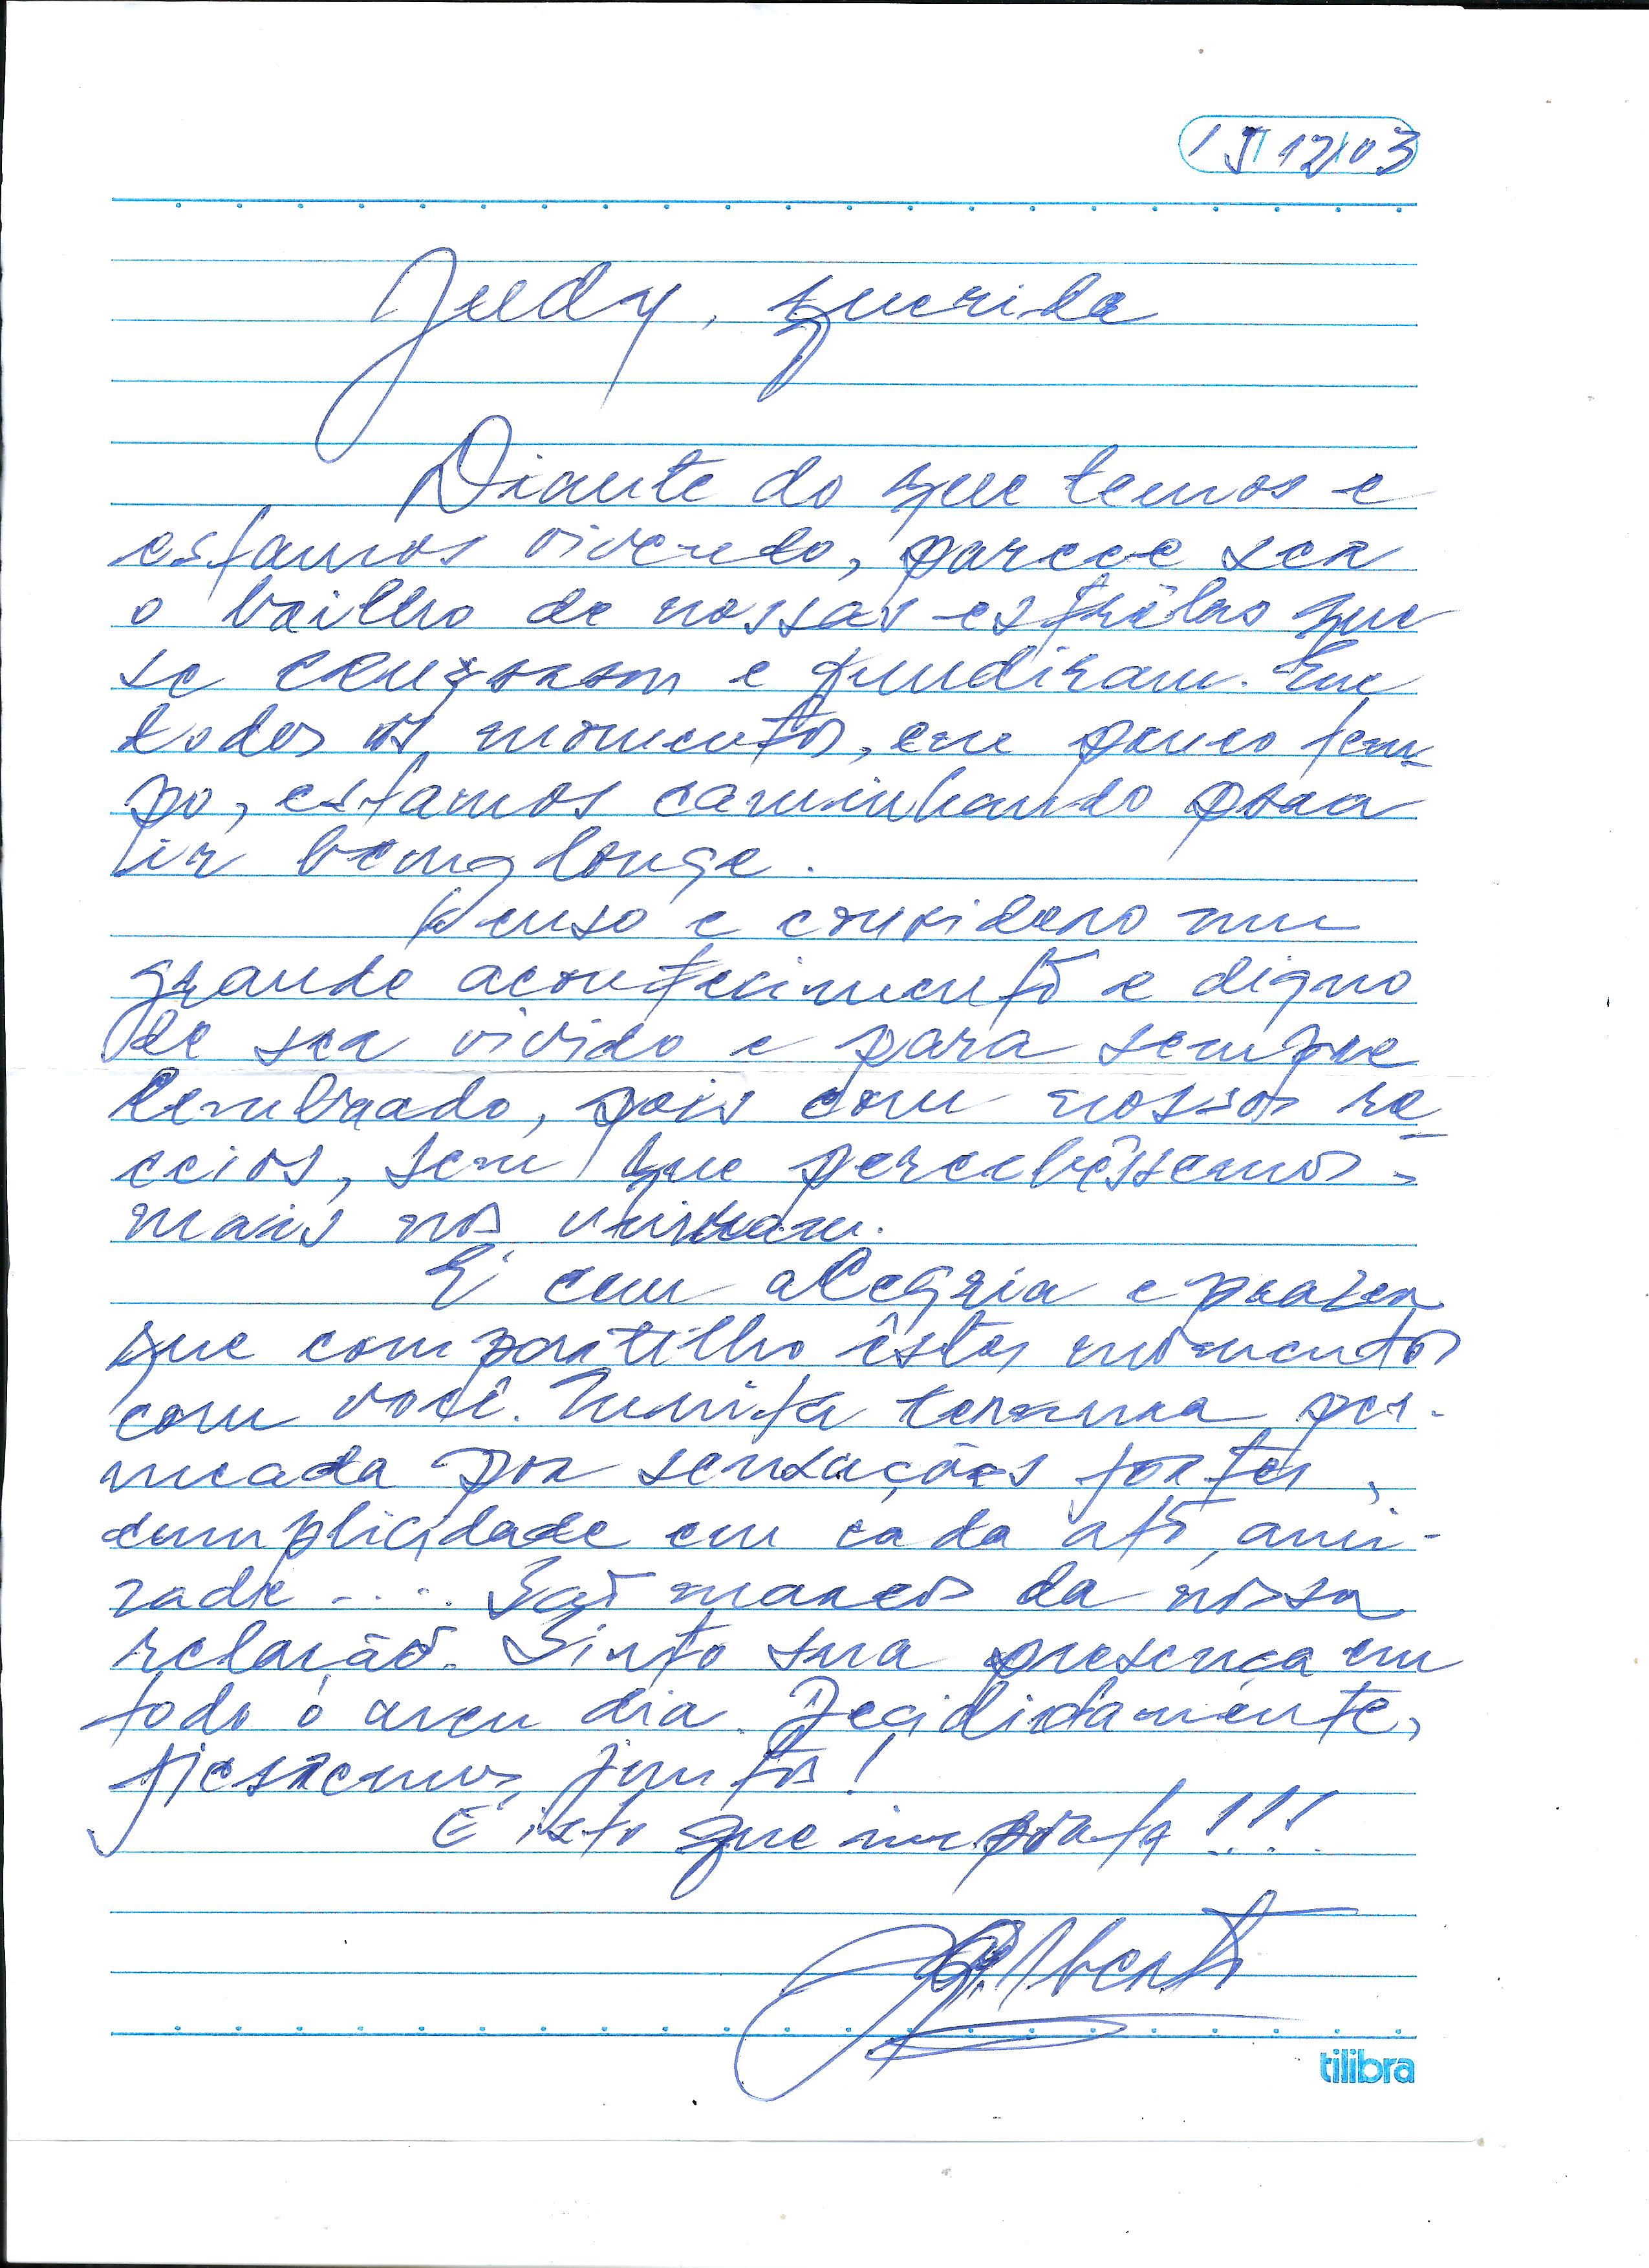 15/12/03
Judy, querida
Diante do que temos e
estamos vivendo, parece ser
o brilho de nossas estrêlas que
se cruzaram e fundiram. Em
todos os momentos, em pouco tem-
po, estamos caminhando para
ir bem longe.
Penso e considero um
grande acontecimento e digno
de ser vivido e para sempre
lembrado, pois com nossos re-
ceios, sem que percebêssemos -
mais nos uniram.
É com alegria e prazer
que compartilho êstes momentos
com você. Muita ternura per-
meada por sensações fortes,
cumplicidade em cada ato, ami-
zade .... São marcos da nossa
relação. Sinto sua presença em
todo o meu dia. Decididamente,
fiquemos juntos!
É isto que importa!!!
Gilberto
tilibra